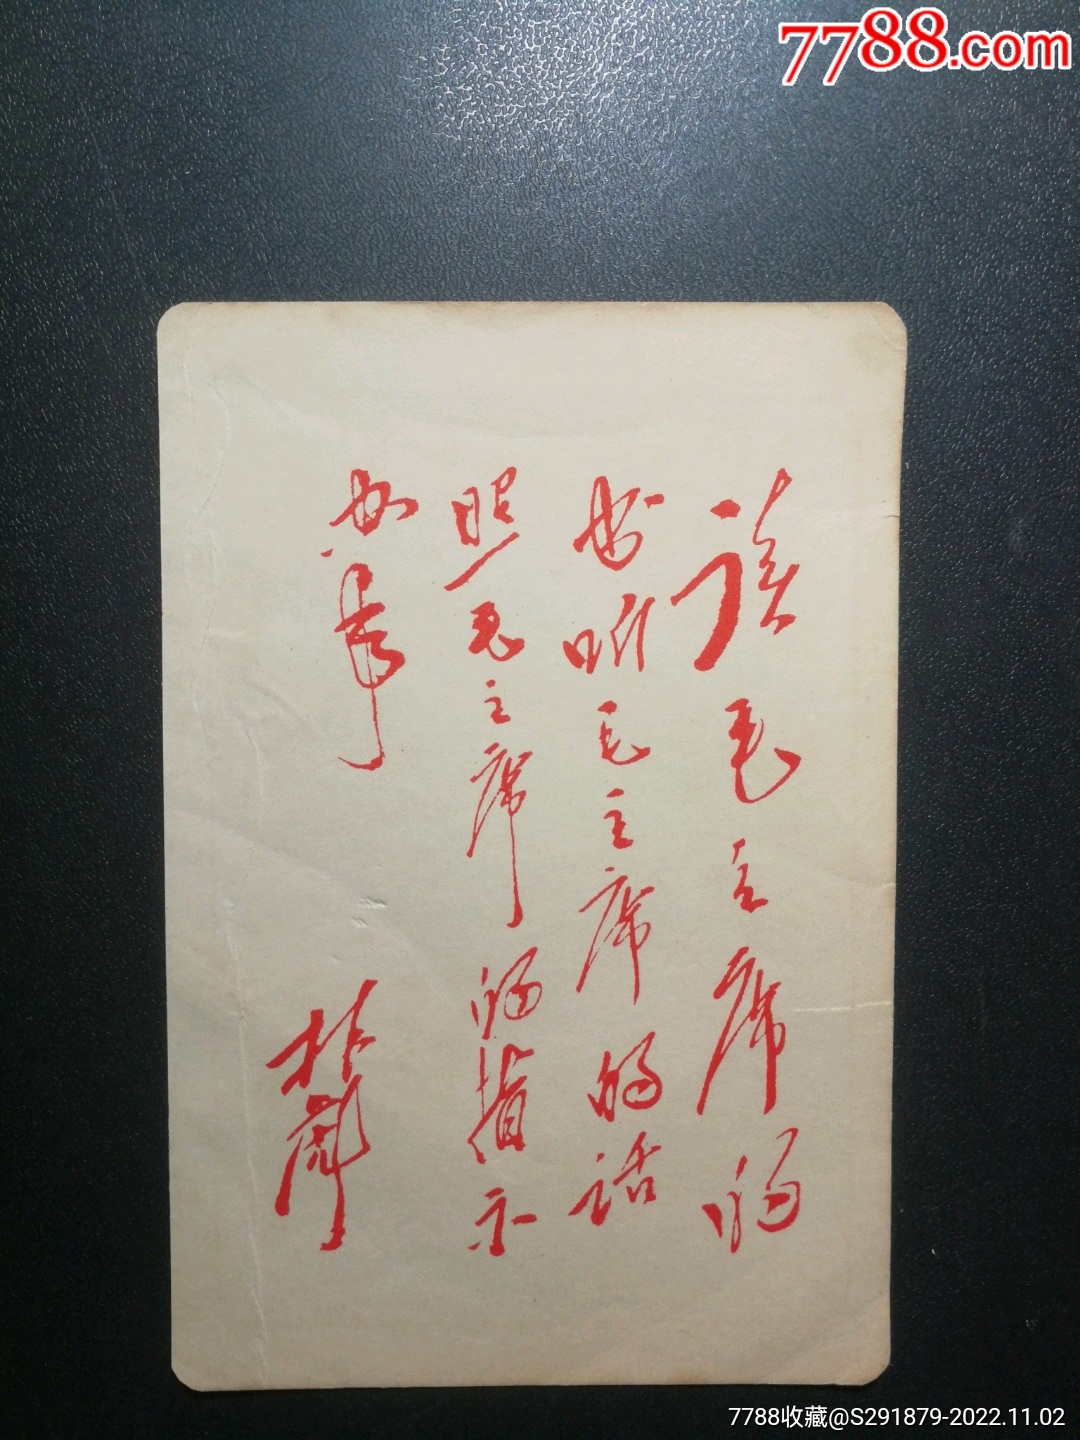 7788.com
读毛主席的
书听毛主席的话
照毛主席的指示
办事
林彪
7788收藏@S291879-2022.11.02